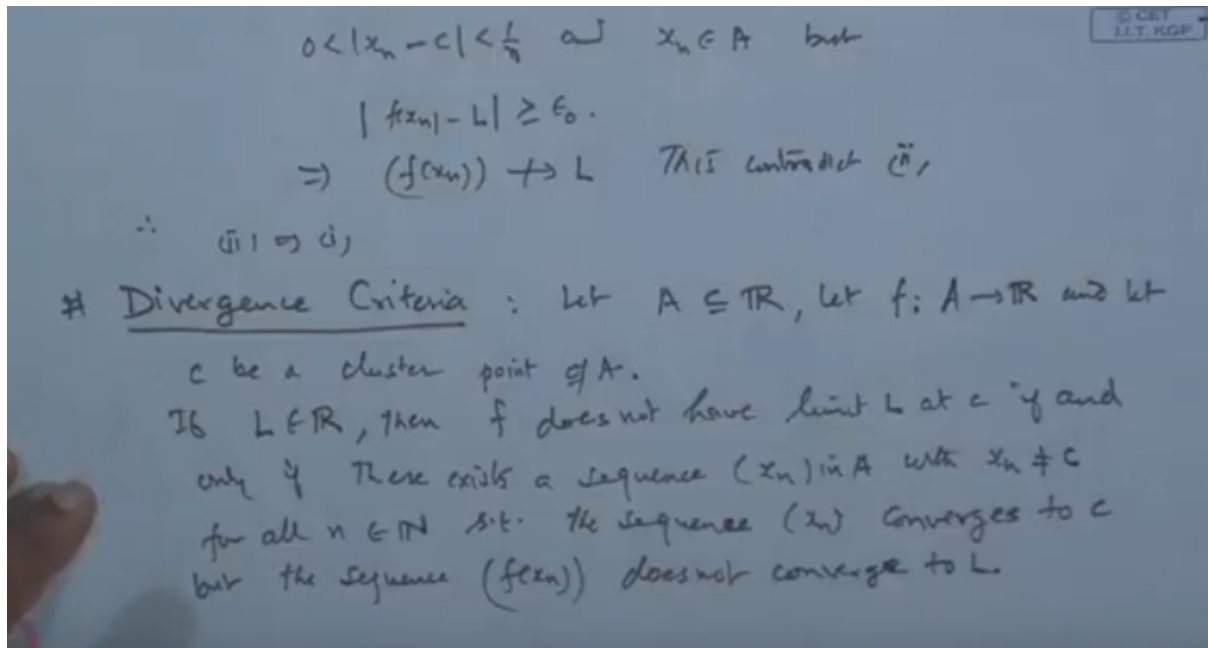 © CET
I.I.T. KGP
0 < |xₙ - c| < 1/n and xₙ ∈ A but
|f(xₙ) - L| ≥ ε₀.
⇒ (f(xₙ)) ↛ L This contradict (ii),
∴ (ii) ⇒ (i),
# Divergence Criteria : Let A ⊆ ℝ, let f: A → ℝ and let
c be a cluster point of A.
If L ∈ ℝ, then f does not have limit L at c if and
only if There exists a sequence (xₙ) in A with xₙ ≠ c
for all n ∈ ℕ s.t. the sequence (xₙ) converges to c
but the sequence (f(xₙ)) does not converge to L.